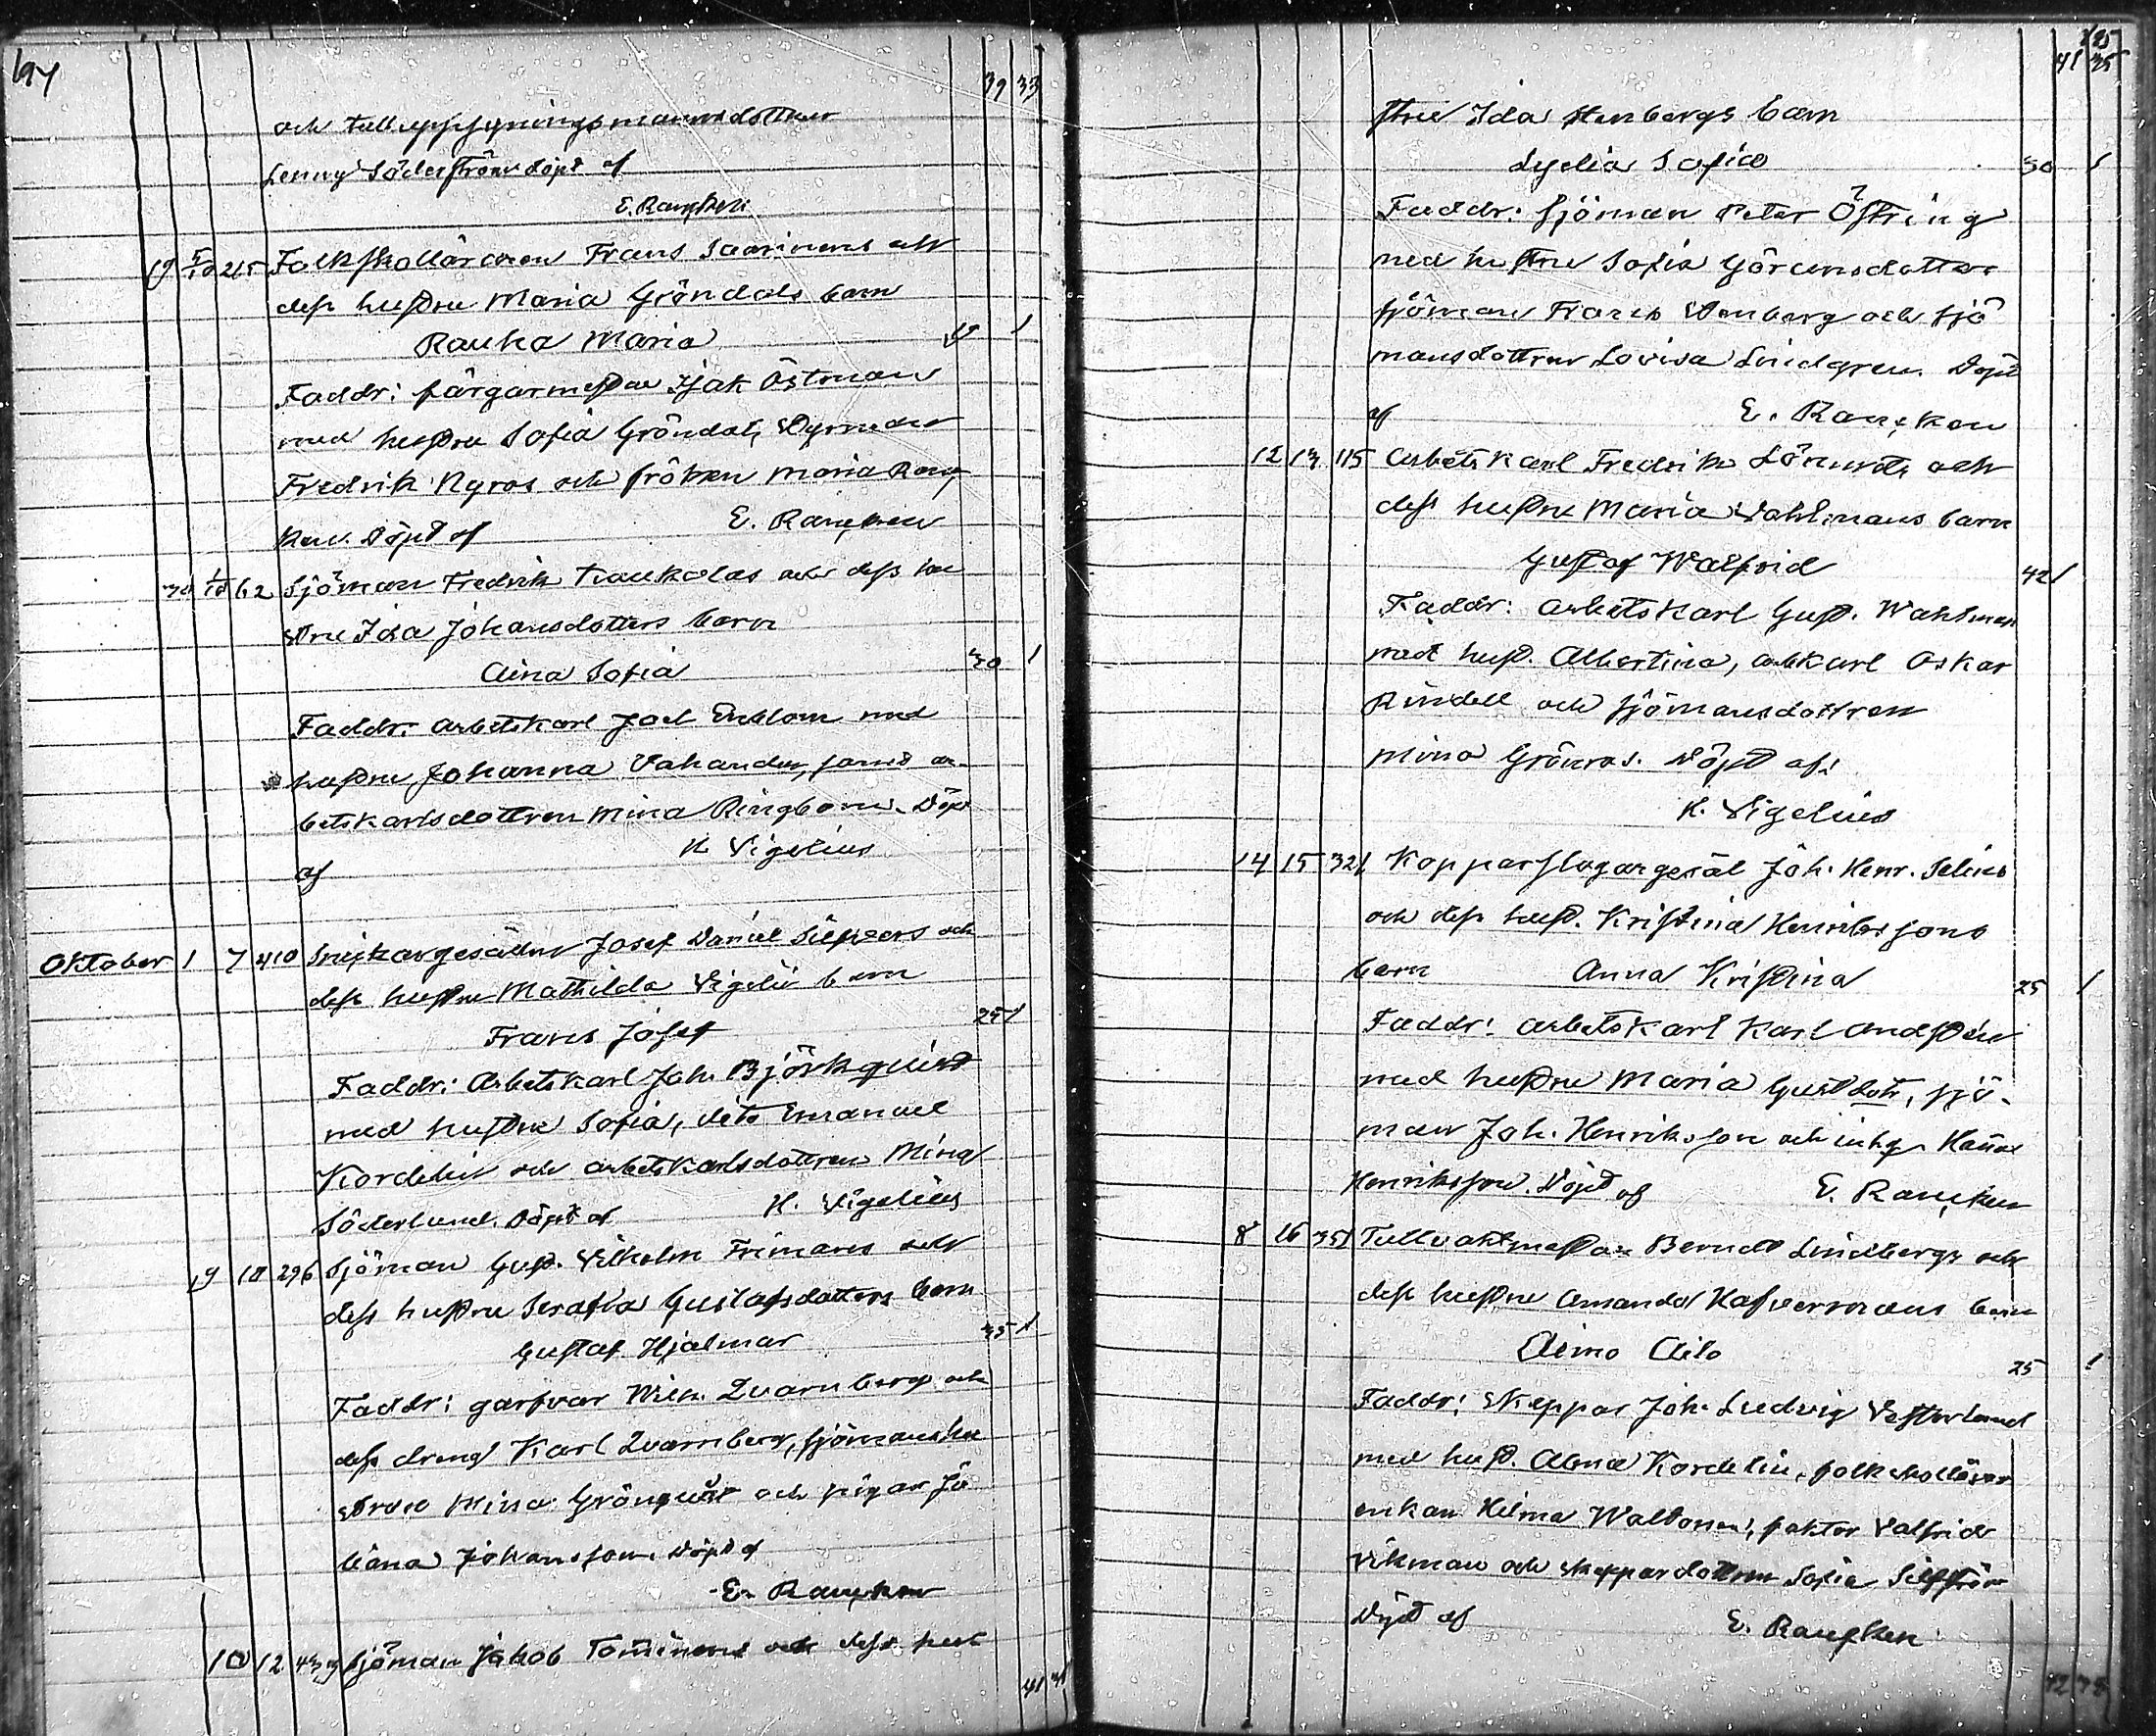 194
39 33
och tulluppsyningsmannsdottren
Lenny Söderström Döpt af
E. Rancken
19 5/10 215 Folkskolläraren Frans Saarinens och
dess hustru Maria Gröndals barn
Rauha Maria 1
Faddr: färgarmestar Isak Östman
med hustru Sofia Gröndal,
Fredrik Nyros och fröken Maria Ranc
ken. Döpt af E. Rancken
30 1/10 62 Sjöman Fredrik och dess hu
stru Ida Johansdotters barn
Aina Sofia 30 1
Faddr: arbetskarl Joel Enblom med
hustru Johanna samt ar
betskarlsdottren Mina Ringbom. Döpt
af K. Vigelius
Oktober 1 7 410 Snickargesällen Josef Daniel och
dess hustru Mathilda barn
Frans Josef 25 1
Faddr: Arbetskarl Joh. Björkqvist
med hustru Sofia, dito Emanuel
Kordelin och arbetskarlsdottren Mina
Söderlund. Döpt af K. Vigelius
9 10 296 Sjöman Gust. Vilhelm Frimans och
dess hustru Serafia Gustafsdotters barn
Gustaf Hjalmar 35 1
Faddr: garfvar Wilh. Qvarnberg och
dess dreng Karl Qvarnberg, sjömanshu
strun Mina Grönqvist och pigan Jo
hana Johansson. Döpt af
E. Rancken
10 12 439 Sjöman Jakob Tominens och dess hust
41
195
41 35
stru Ida Stenbergs barn
Lydia Sofia 30 1
Faddr: Sjöman Peter Östring
med hustru Sofia Göransdotter
sjöman Frans Stenberg och sjö
mansdottren Lovisa Lindgren. Döpt
af E. Rancken
12 14 115 Arbetskarl Fredrik och
dess hustru Maria Vahlmans barn
Gustaf Walfrid 42 1
Faddr: arbetskarl Gust. Wahlman
med hust. Albertina, arbkarl Oskar
Rindell och sjömansdottren
Mina Grönros. Döpt af:
K. Vigelius
14 15 321 Kopparslagargesäl Joh. Henr. Selins
och dess hust. Kristina Henrikssons
barn Anna Kristina 25 1
Faddr: arbetskarl Karl Andstén
med hustru Maria Gustdotr, sjö-
man Joh. Henriksson och Hanna
Henriksson. Döpt af E. Rancken
8 16 351 Tullvaktmästar Berndt Lindbergs och
dess hustru Amanda Hafvermans barn
Aimo Ailo 25 1
Faddr: Skeppar Joh. Ludvig Vesterlund
med hust. Alma Kordelin, folkskollärar
enkan Hilma Waltonen, faktor Valfrid
Vikman och skeppardottren Sofia
Döpt af E. Rancken
42